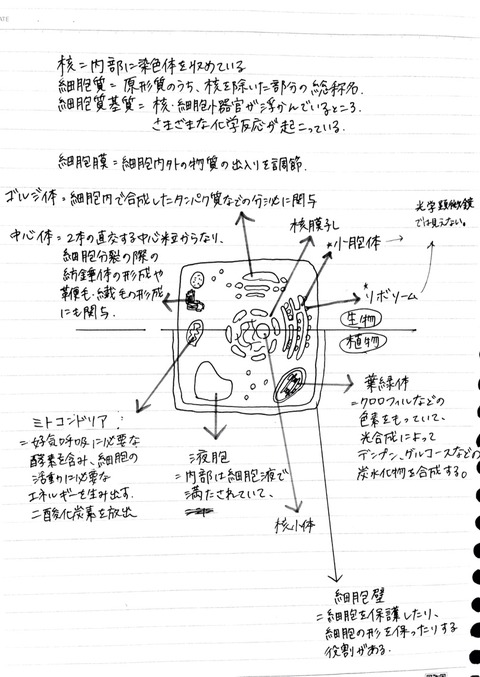 核＝内部に染色体を収めている
細胞質＝原形質のうち、核を除いた部分の総称名.
細胞質基質＝核・細胞小器官が浮かんでいるところ.
さまざまな化学反応が起こっている.
細胞膜＝細胞内外の物質の出入りを調節.
ゴルジ体＝細胞内で合成したタンパク質などの分泌に関与
光学顕微鏡
では見えない。
核膜孔
*小胞体
中心体＝2本の直交する中心粒からなり、
細胞分裂の際の
紡錘体の形成や
鞭毛・繊毛の形成
にも関与.
*リボソーム
生物
植物
葉緑体
＝クロロフィルなどの
色素をもっていて、
光合成によって
デンプン、グルコースなどの
炭水化物を合成する。
ミトコンドリア：
＝好気呼吸に必要な
酵素を含み、細胞の
活動に必要な
エネルギーを生み出す.
二酸化炭素を放出
液胞
＝内部は細胞液で
満たされていて、
核小体
細胞壁
＝細胞を保護したり、
細胞の形を保ったりする
役割がある.